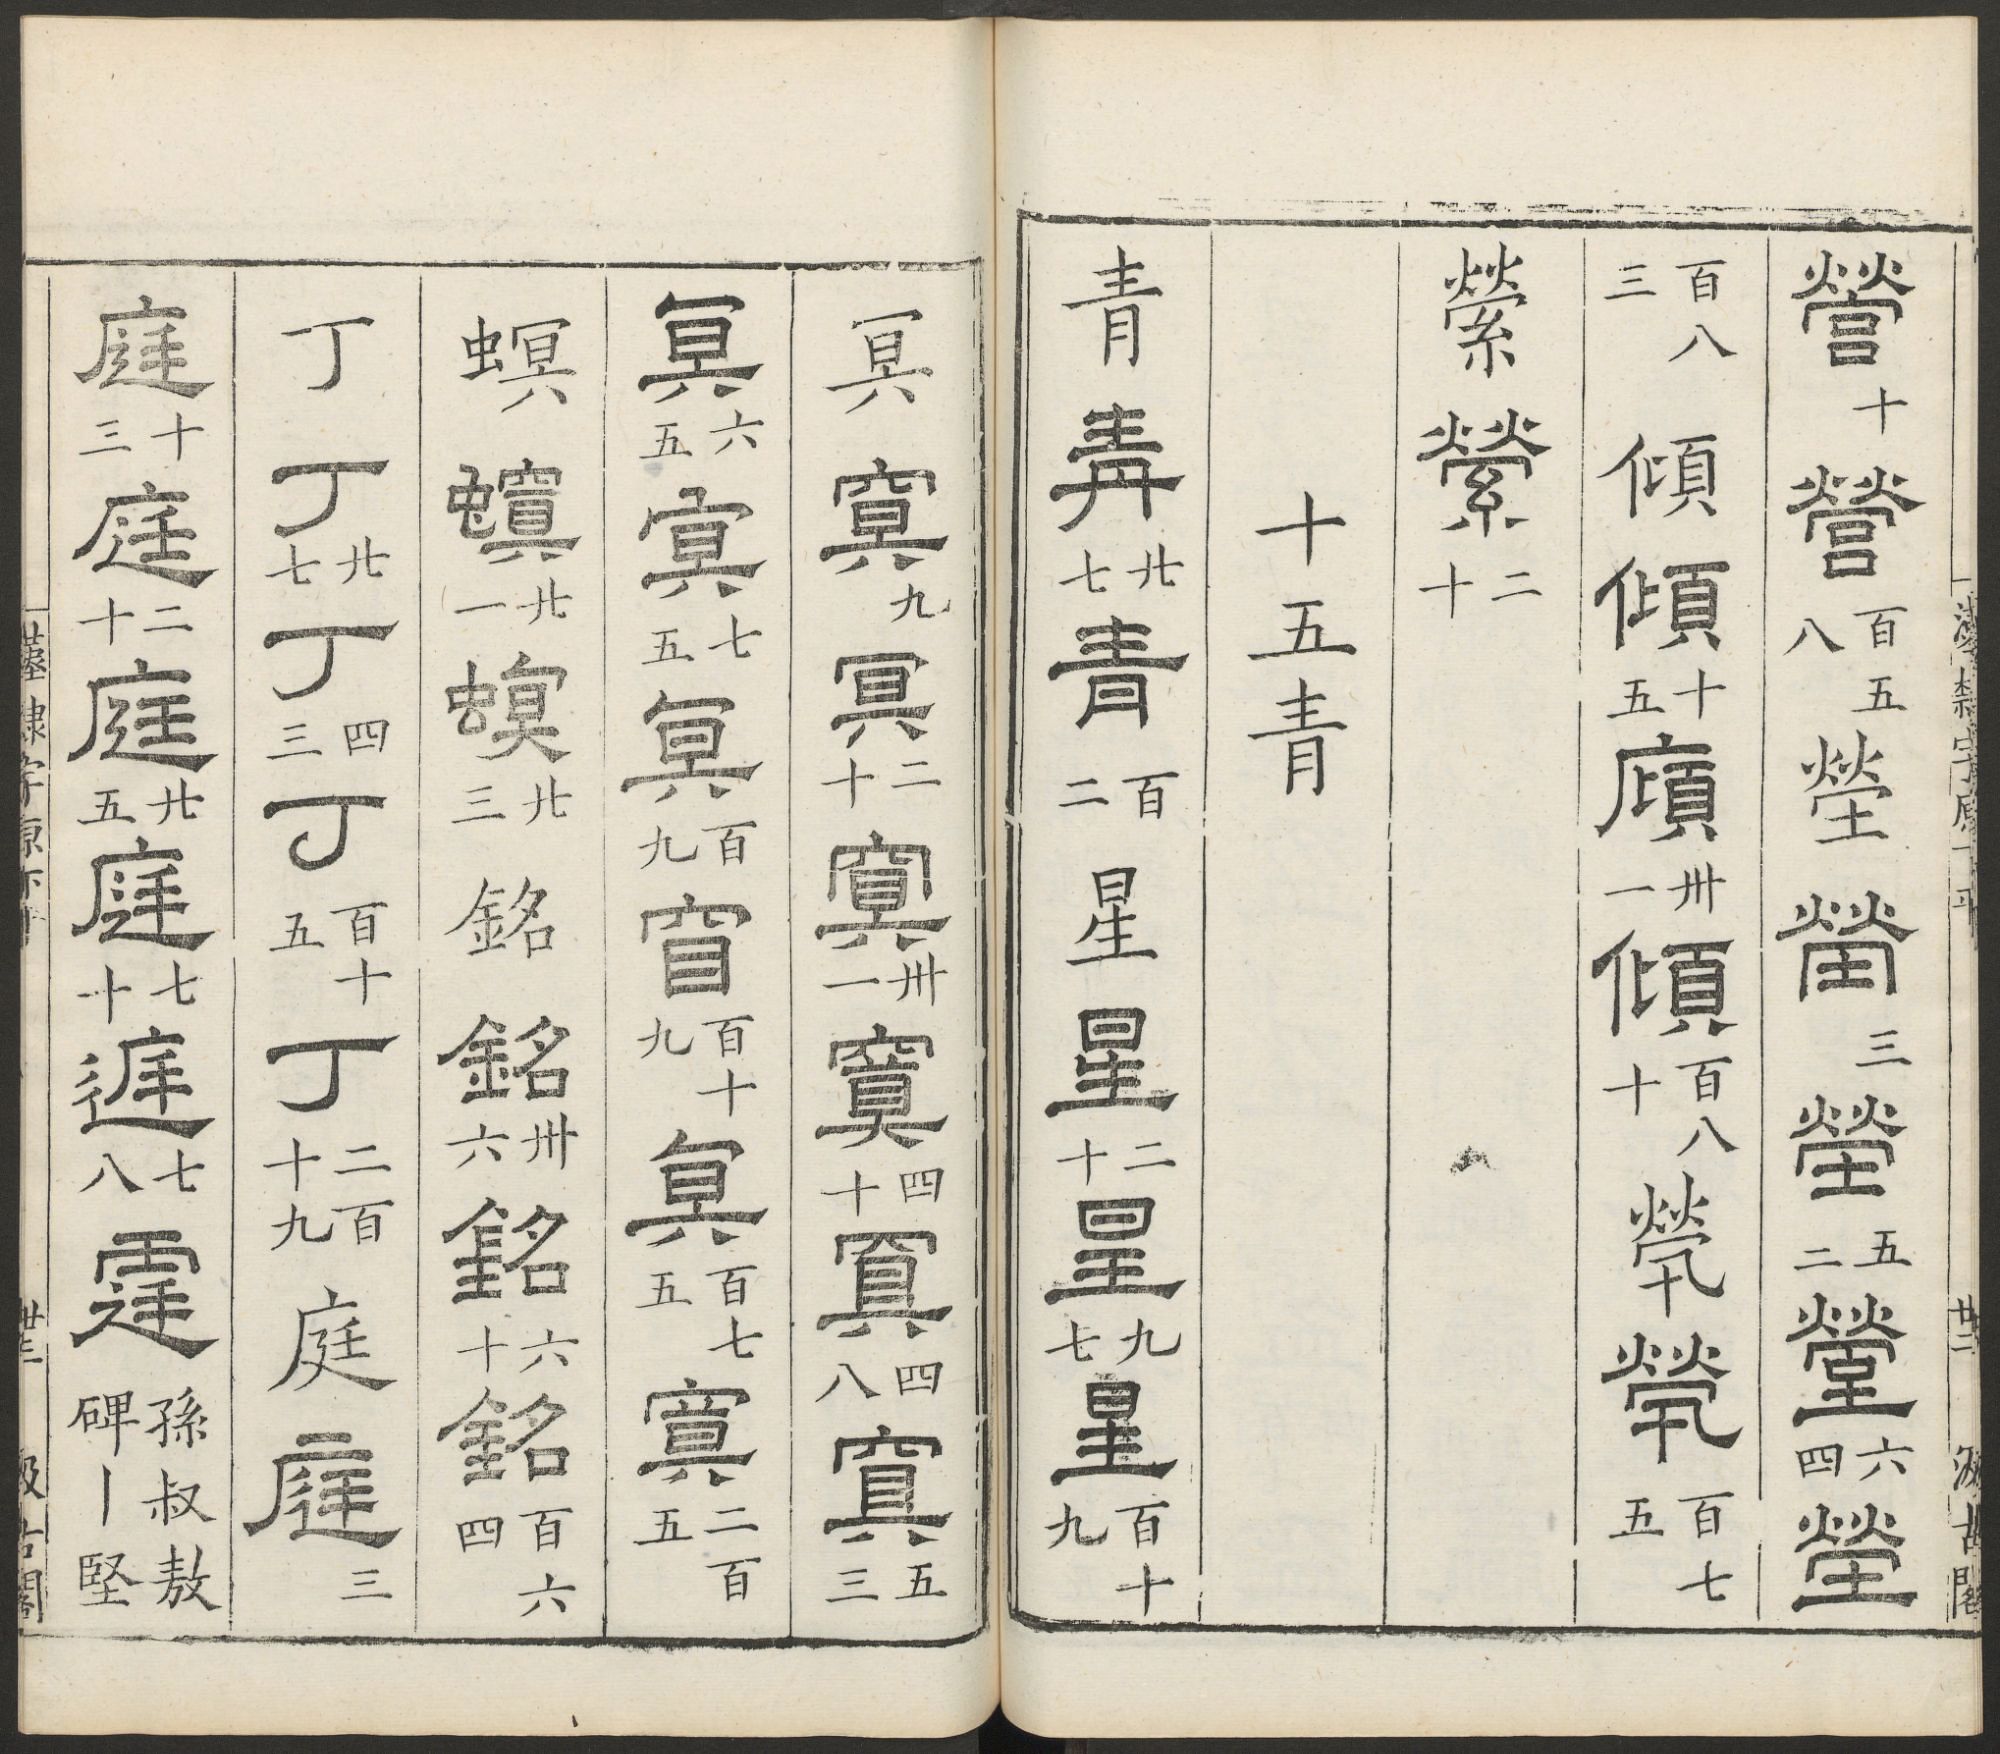 營十營百五八塋塋三塋五二塋六四塋
百八三傾傾十五傾卅一傾百八十煢煢百七五
縈縈二十
十五青
青青廿七青百二星星二十星九七星百十九
漢隸字原下平 廿二 汲古閣
冥冥九冥二十冥卅一冥四十冥四八冥五三
冥六五冥七五冥百九冥百十九冥百七五冥二百五
螟螟廿一螟廿三銘銘卅六銘六十銘百六四
丁丁廿七丁四三丁百十五丁二百十九庭庭三
庭十三庭二十庭廿五庭七十庭七八霆孫叔敖碑丨堅
漢隸字原下平 廿三 汲古閣